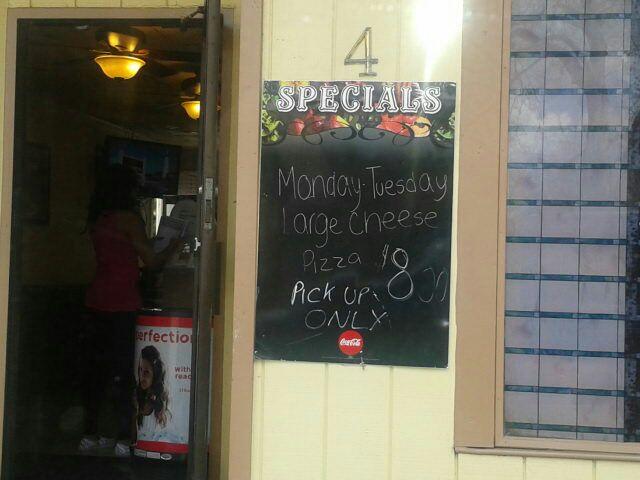 4
SPECIALS
Monday-Tuesday
large cheese
Pizza $8.00
PICK UP
ONLY
Coca-Cola
erfectio
with